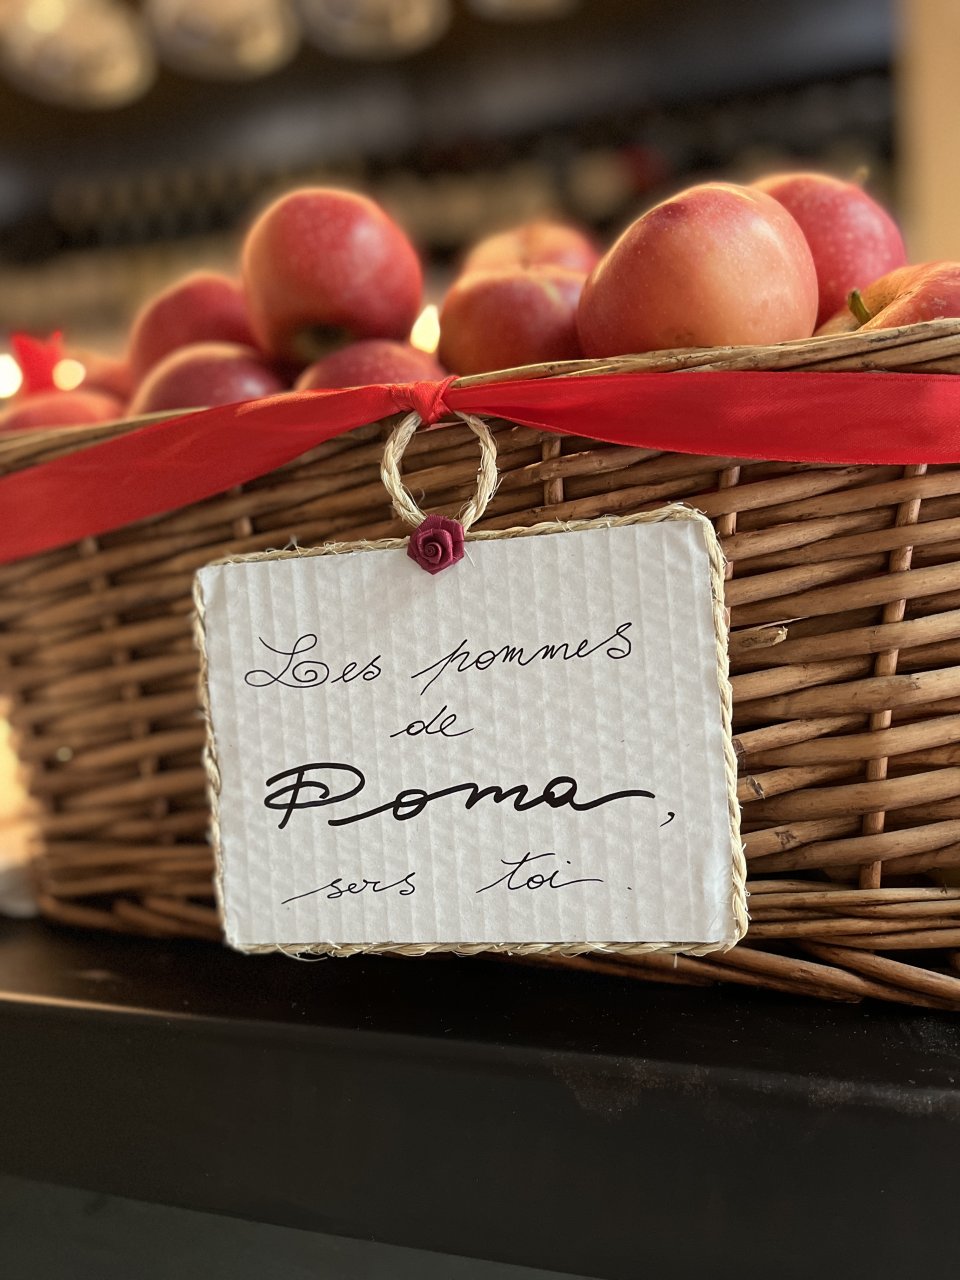 Les pommes
de
Poma,
sers toi.